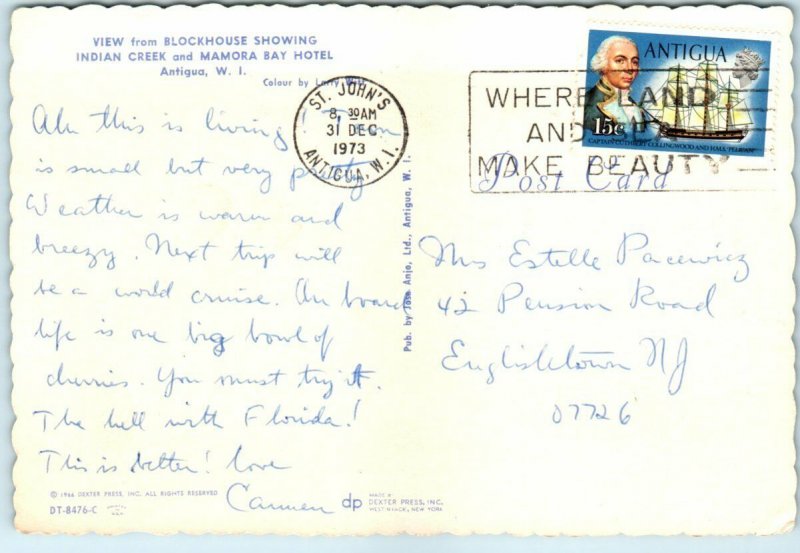 VIEW from BLOCKHOUSE SHOWING
INDIAN CREEK and MAMORA BAY HOTEL
Antigua, W. I.
Colour by
Ah this is living!
is small but very pretty
Weather is warm and
breezy. Next trip will
be a world cruise. On board
life is one big bowl of
cherries. You must try it.
The hell with Florida!
This is better! Love
Carmen
© 1966 DEXTER PRESS, INC. ALL RIGHTS RESERVED
DT-8476-C
dp
MADE BY
DEXTER PRESS, INC.
WEST NYACK, NEW YORK
Pub. by Jose Anjo, Ltd., Antigua, W. I.
ST. JOHN'S
8.30AM
31 DEC
1973
ANTIGUA, W.I.
WHERE LAND
AND SEA
MAKE BEAUTY
ANTIGUA
15c
CAPTAIN CUTHBERT COLLINGWOOD AND H.M.S. "PELICAN"
Post Card
Mrs Estelle Pacewicz
42 Pension Road
Englishtown NJ
07726